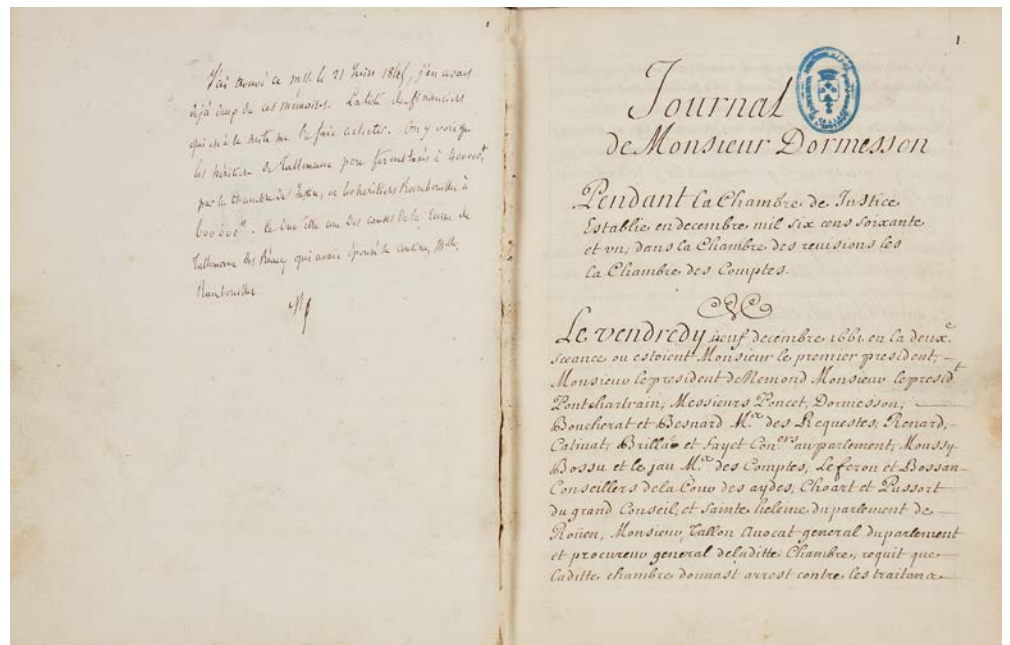 1
J'ai trouvé ce mss. le 21 1845, j'en avais
déjà de ces mémoires. La liste des financiers
qui est à la suite me l'a fait acheter. On y voit que
les héritiers de Tallemant père furent taxés à 400000
par la chambre de Justice, et les héritiers Rambouillet à
600 000. Ce une des causes de la ruine de
Tallemant des Réaux qui avait épousé sa cousine, Melle
Rambouillet
1
Journal
de Monsieur Dormesson
Pendant la Chambre de Justice
Establie en decembre mil six cens soixante
et vn, dans la Chambre des reuisions les
la Chambre des Comptes.
Le vendredy neuf decembre 1661 en la deuxe.
sceance ou estoient Monsieur le premier president,
Monsieur le president de Nemond Monsieur le presidt.
Pontchartrain, Messieurs Poncet, Dormesson,
Boucherat et Besnard Mes. des Requestes, Renard,
Catinat, Brillac et Fayet Coners au parlement, Moussy
Bossu et le jau Mes. des Comptes, Le feron et Bossan
Conseillers de la Cour des aydes, Choart et Pussort
du grand Conseil, et sainte heleine du parlement de
Roüen, Monsieur Tallon Auocat general du parlement
et procureur general de laditte Chambre, requit que
laditte chambre donnast arrest contre les traitans